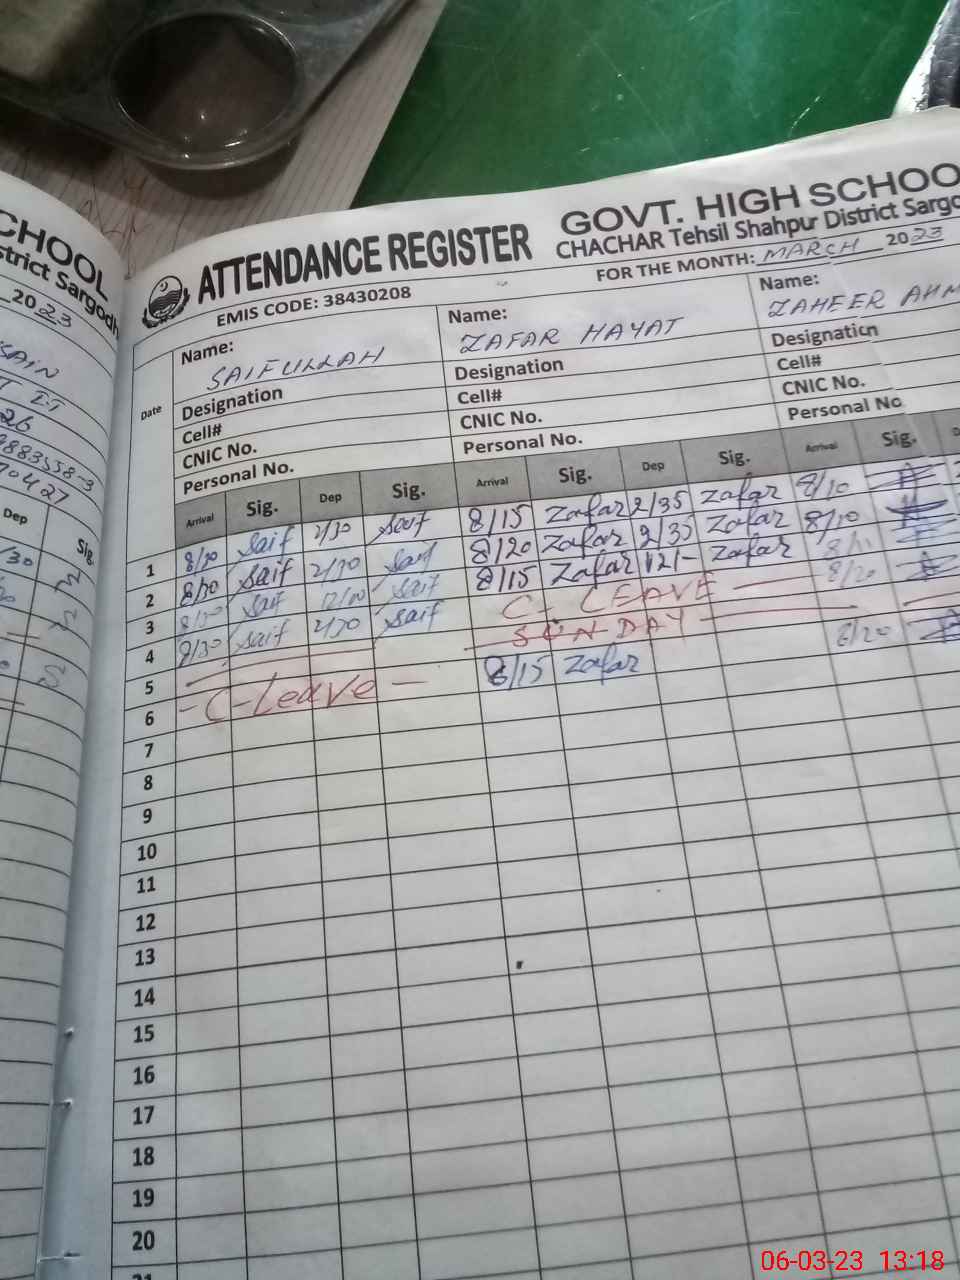 CHOOL
strict Sargodh
2023
SAIN
Dep
Sig
ATTENDANCE REGISTER
GOVT. HIGH SCHOO
CHACHAR Tehsil Shahpur District Sargo
EMIS CODE: 38430208
FOR THE MONTH: MARCH 2023
Date
Name: SAIFULLAH
Designation
Cell#
CNIC No.
Personal No.
Name: ZAFAR HAYAT
Designation
Cell#
CNIC No.
Personal No.
Name: ZAHEER AHM
Designation
Cell#
CNIC No.
Personal No.
Arrival Sig. Dep Sig. Arrival Sig. Dep Sig. Arrival Sig.
1 8/30 Saif 2/30 Saif 8/15 Zafar 2/35 Zafar 8/10
2 8/30 Saif 2/30 Saif 8/20 Zafar 2/35 Zafar 8/10
3 Saif 12/00 Saif 8/15 Zafar 12/- Zafar
4 8/30 Saif 2/30 Saif C- LEAVE 8/20
5 SUNDAY
6 - C-Leave - 8/15 Zafar 8/20
7
8
9
10
11
12
13
14
15
16
17
18
19
20
06-03-23 13:18